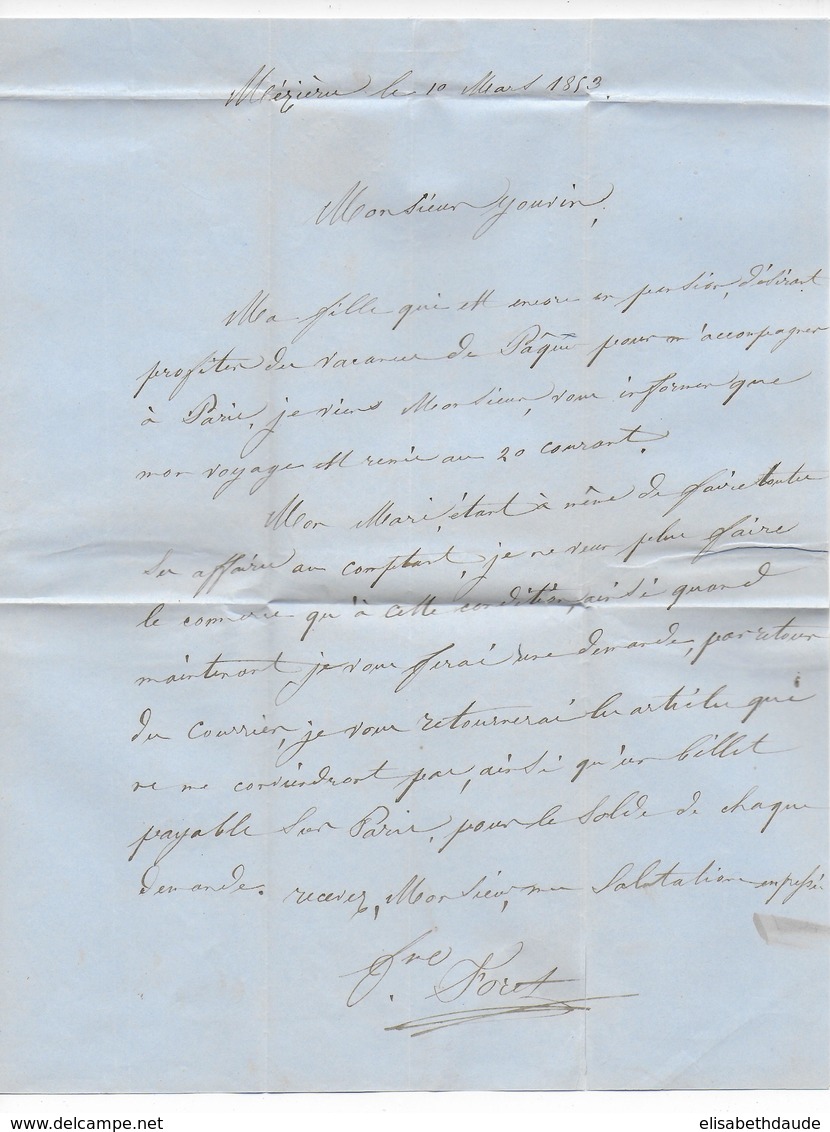 Mézières le 10 Mars 1853.
Monsieur Jouvin,
Ma fille qui est encore en pension, désirant
profiter des vacances de Pâques pour m'accompagner
à Paris, je viens Monsieur, vous informer que
mon voyage est remis au 20 courant.
Mon Mari, étant à même de faire toutes
ses affaires au comptant, je ne veux plus faire
le commerce qu'à cette condition, ainsi quand
maintenant je vous ferai une demande, par retour
du courrier, je vous retournerai les articles qui
ne me conviendront pas, ainsi qu'un billet
payable sur Paris, pour le solde de chaque
demande. recevez, Monsieur, mes Salutations empressées
Foret
elisabethdaude
delcampe.net